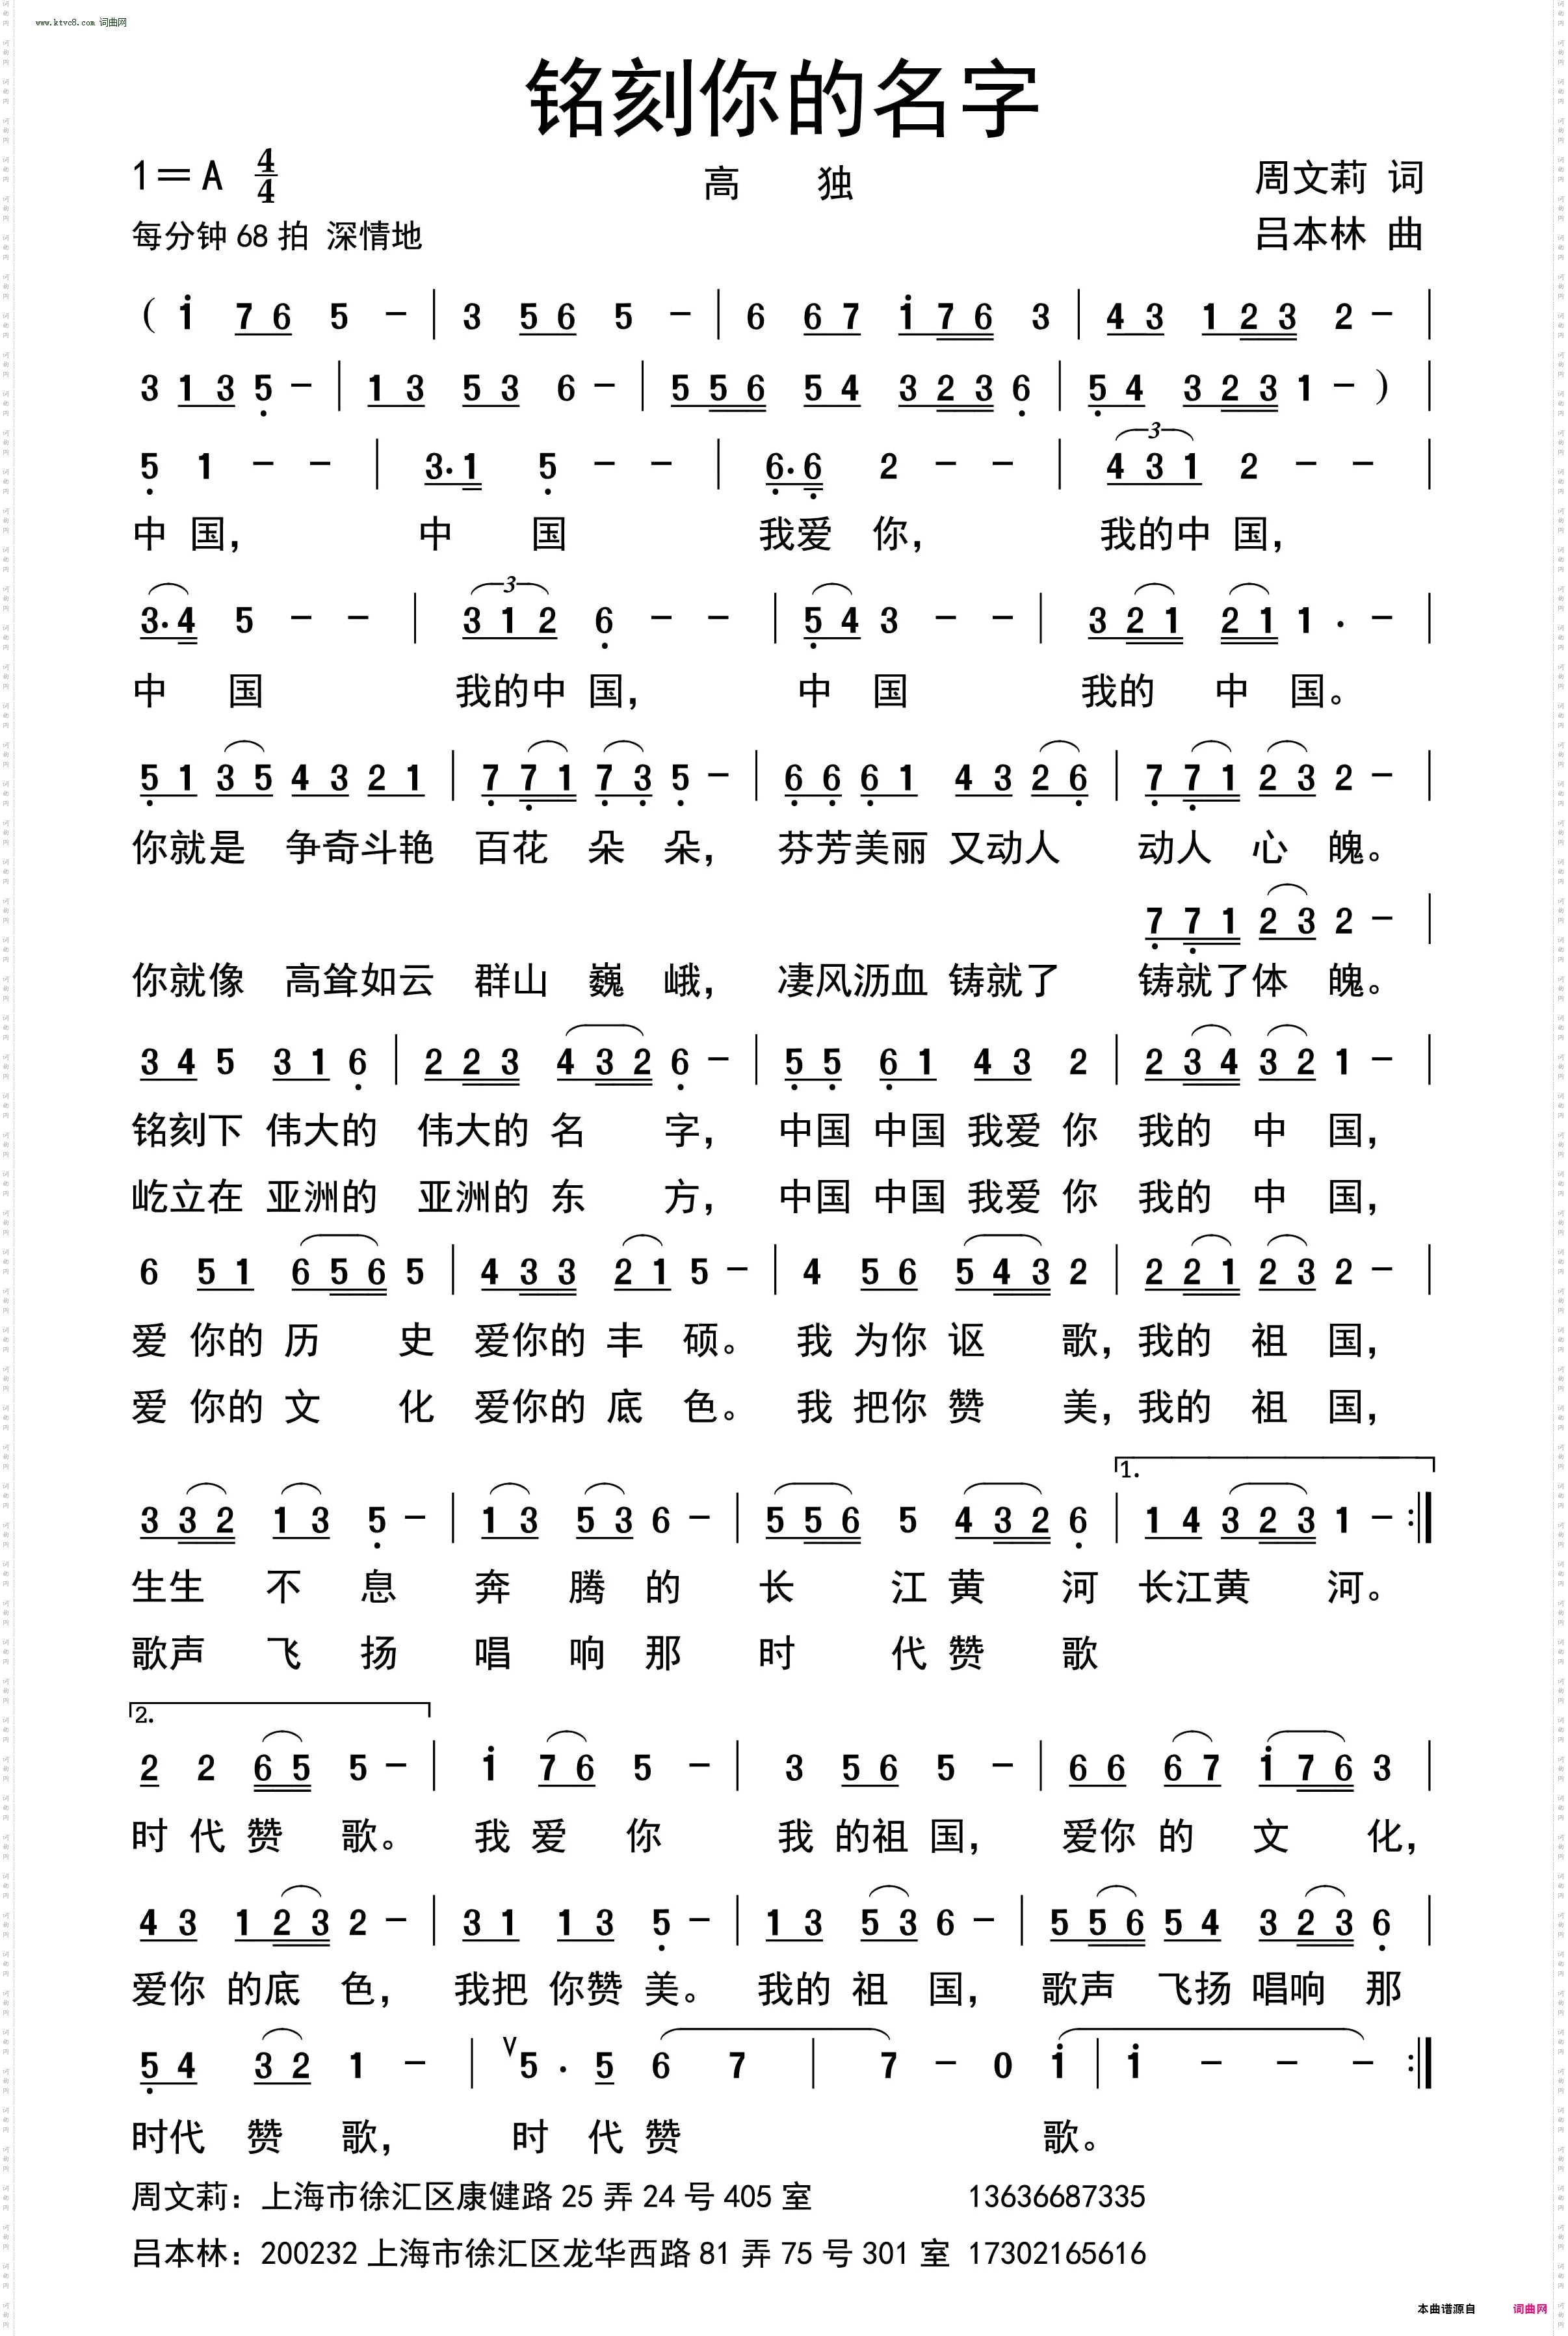 www.ktvc8.com 词曲网
铭刻你的名字
1=A 4/4
高 独
周文莉 词
每分钟 68 拍 深情地
吕本林 曲
( i 7 6 5 - | 3 5 6 5 - | 6 6 7 i 7 6 3 | 4 3 1 2 3 2 - |
3 1 3 5 - | 1 3 5 3 6 - | 5 5 6 5 4 3 2 3 6 | 5 4 3 2 3 1 - ) |
5 1 - - | 3· 1 5 - - | 6· 6 2 - - | 3 4 3 1 2 - - |
中 国, 中 国 我爱 你, 我的中 国,
3· 4 5 - - | 3 3 1 2 6 - - | 5 4 3 - - | 3 2 1 2 1 1 · - |
中 国 我的中 国, 中 国 我的 中 国。
5 1 3 5 4 3 2 1 | 7 7 1 7 3 5 - | 6 6 6 1 4 3 2 6 | 7 7 1 2 3 2 - |
你就是 争奇斗艳 百花 朵 朵, 芬芳美丽 又动人 动人 心 魄。
7 7 1 2 3 2 - |
你就像 高耸如云 群山 巍 峨, 凄风沥血 铸就了 铸就了体 魄。
3 4 5 3 1 6 | 2 2 3 4 3 2 6 - | 5 5 6 1 4 3 2 | 2 3 4 3 2 1 - |
铭刻下 伟大的 伟大的 名 字, 中国 中国 我爱 你 我的 中 国,
屹立在 亚洲的 亚洲的 东 方, 中国 中国 我爱 你 我的 中 国,
6 5 1 6 5 6 5 | 4 3 3 2 1 5 - | 4 5 6 5 4 3 2 | 2 2 1 2 3 2 - |
爱 你的 历 史 爱你的 丰 硕。 我 为你 讴 歌, 我的 祖 国,
爱 你的 文 化 爱你的 底 色。 我 把你 赞 美, 我的 祖 国,
1.
3 3 2 1 3 5 - | 1 3 5 3 6 - | 5 5 6 5 4 3 2 6 | 1 4 3 2 3 1 - :|
生生 不 息 奔 腾 的 长 江 黄 河 长江黄 河。
歌声 飞 扬 唱 响 那 时 代 赞 歌
2.
2 2 6 5 5 - | i 7 6 5 - | 3 5 6 5 - | 6 6 6 7 i 7 6 3 |
时 代 赞 歌。 我 爱 你 我 的祖 国, 爱你 的 文 化,
4 3 1 2 3 2 - | 3 1 1 3 5 - | 1 3 5 3 6 - | 5 5 6 5 4 3 2 3 6 |
爱你 的底 色, 我把 你赞 美。 我的 祖 国, 歌声 飞扬 唱响 那
5 4 3 2 1 - | V 5 · 5 6 7 | 7 - 0 i | i - - - :|
时代 赞 歌, 时 代 赞 歌。
周文莉: 上海市徐汇区康健路 25 弄 24 号 405 室 13636687335
吕本林: 200232 上海市徐汇区龙华西路 81 弄 75 号 301 室 17302165616
本曲谱源自 词曲网